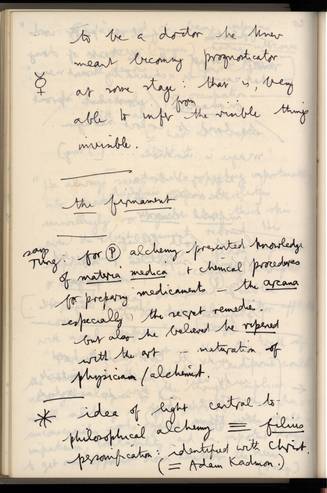 to be a doctor he knew
meant becoming prognosticator
☿ at some stage: that is, being
able to infer from the visible things
invisible.
the firmament
says Jung: for Ⓟ alchemy presented knowledge
of materia medica + chemical procedures
for preparing medicaments — the arcana
especially, the secret remedies.
but also he believed he ripened
with the art — maturation of
physician/alchemist.
* idea of light central to
philosophical alchemy ≡ filius
personification: identified with Christ.
(≡ Adam Kadmon.)